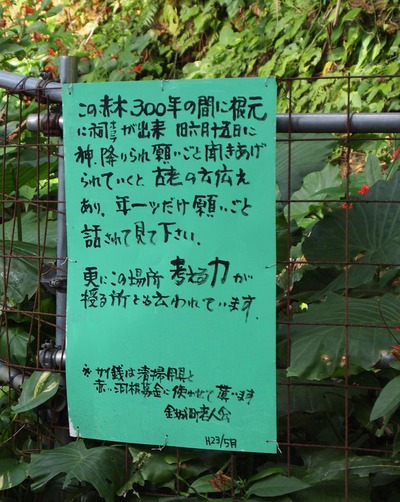 この赤木300年の間に根元
に祠ホコラが出来 旧六月十五日に
神、降りられ願いごと聞きあげ
られていくと 古老の言伝え
あり、年一ツだけ願いごと
話されて見て下さい.
更にこの場所 考える力が
授る所とも云われています.
※サイ銭は清掃用具と
赤い羽根募金に使わせて貰います
金城町老人会
H23/5月